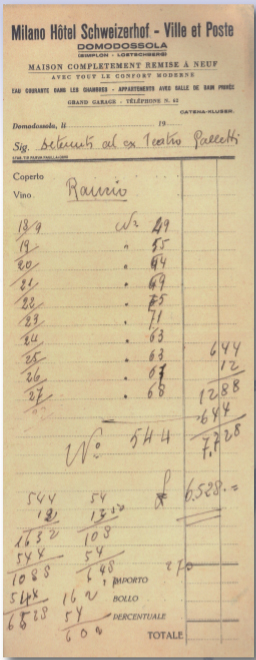 Milano Hôtel Schweizerhof - Ville et Poste
DOMODOSSOLA
(SIMPLON - LOETSCHBERG)
MAISON COMPLETEMENT REMISE À NEUF
AVEC TOUT LE CONFORT MODERNE
EAU COURANTE DANS LES CHAMBRES - APPARTEMENTS AVEC SALLE DE BAIN PRIVÉE
GRAND GARAGE - TÉLÉPHONE N. 42
Domodossola, li 19
Sig. detenuti al ex Teatro Galletti
Coperto
Vino Rancio
18/9 No 49
19 " 55
20 "
21 "
22 "
23 " 71
24 " 63
25 " 63
26 "
27 " 68
644
12
1288
644
7,728
No 544
£ 6.528.=
544 54
12
108
54
1088
IMPORTO
BOLLO 162
PERCENTUALE 54
TOTALE